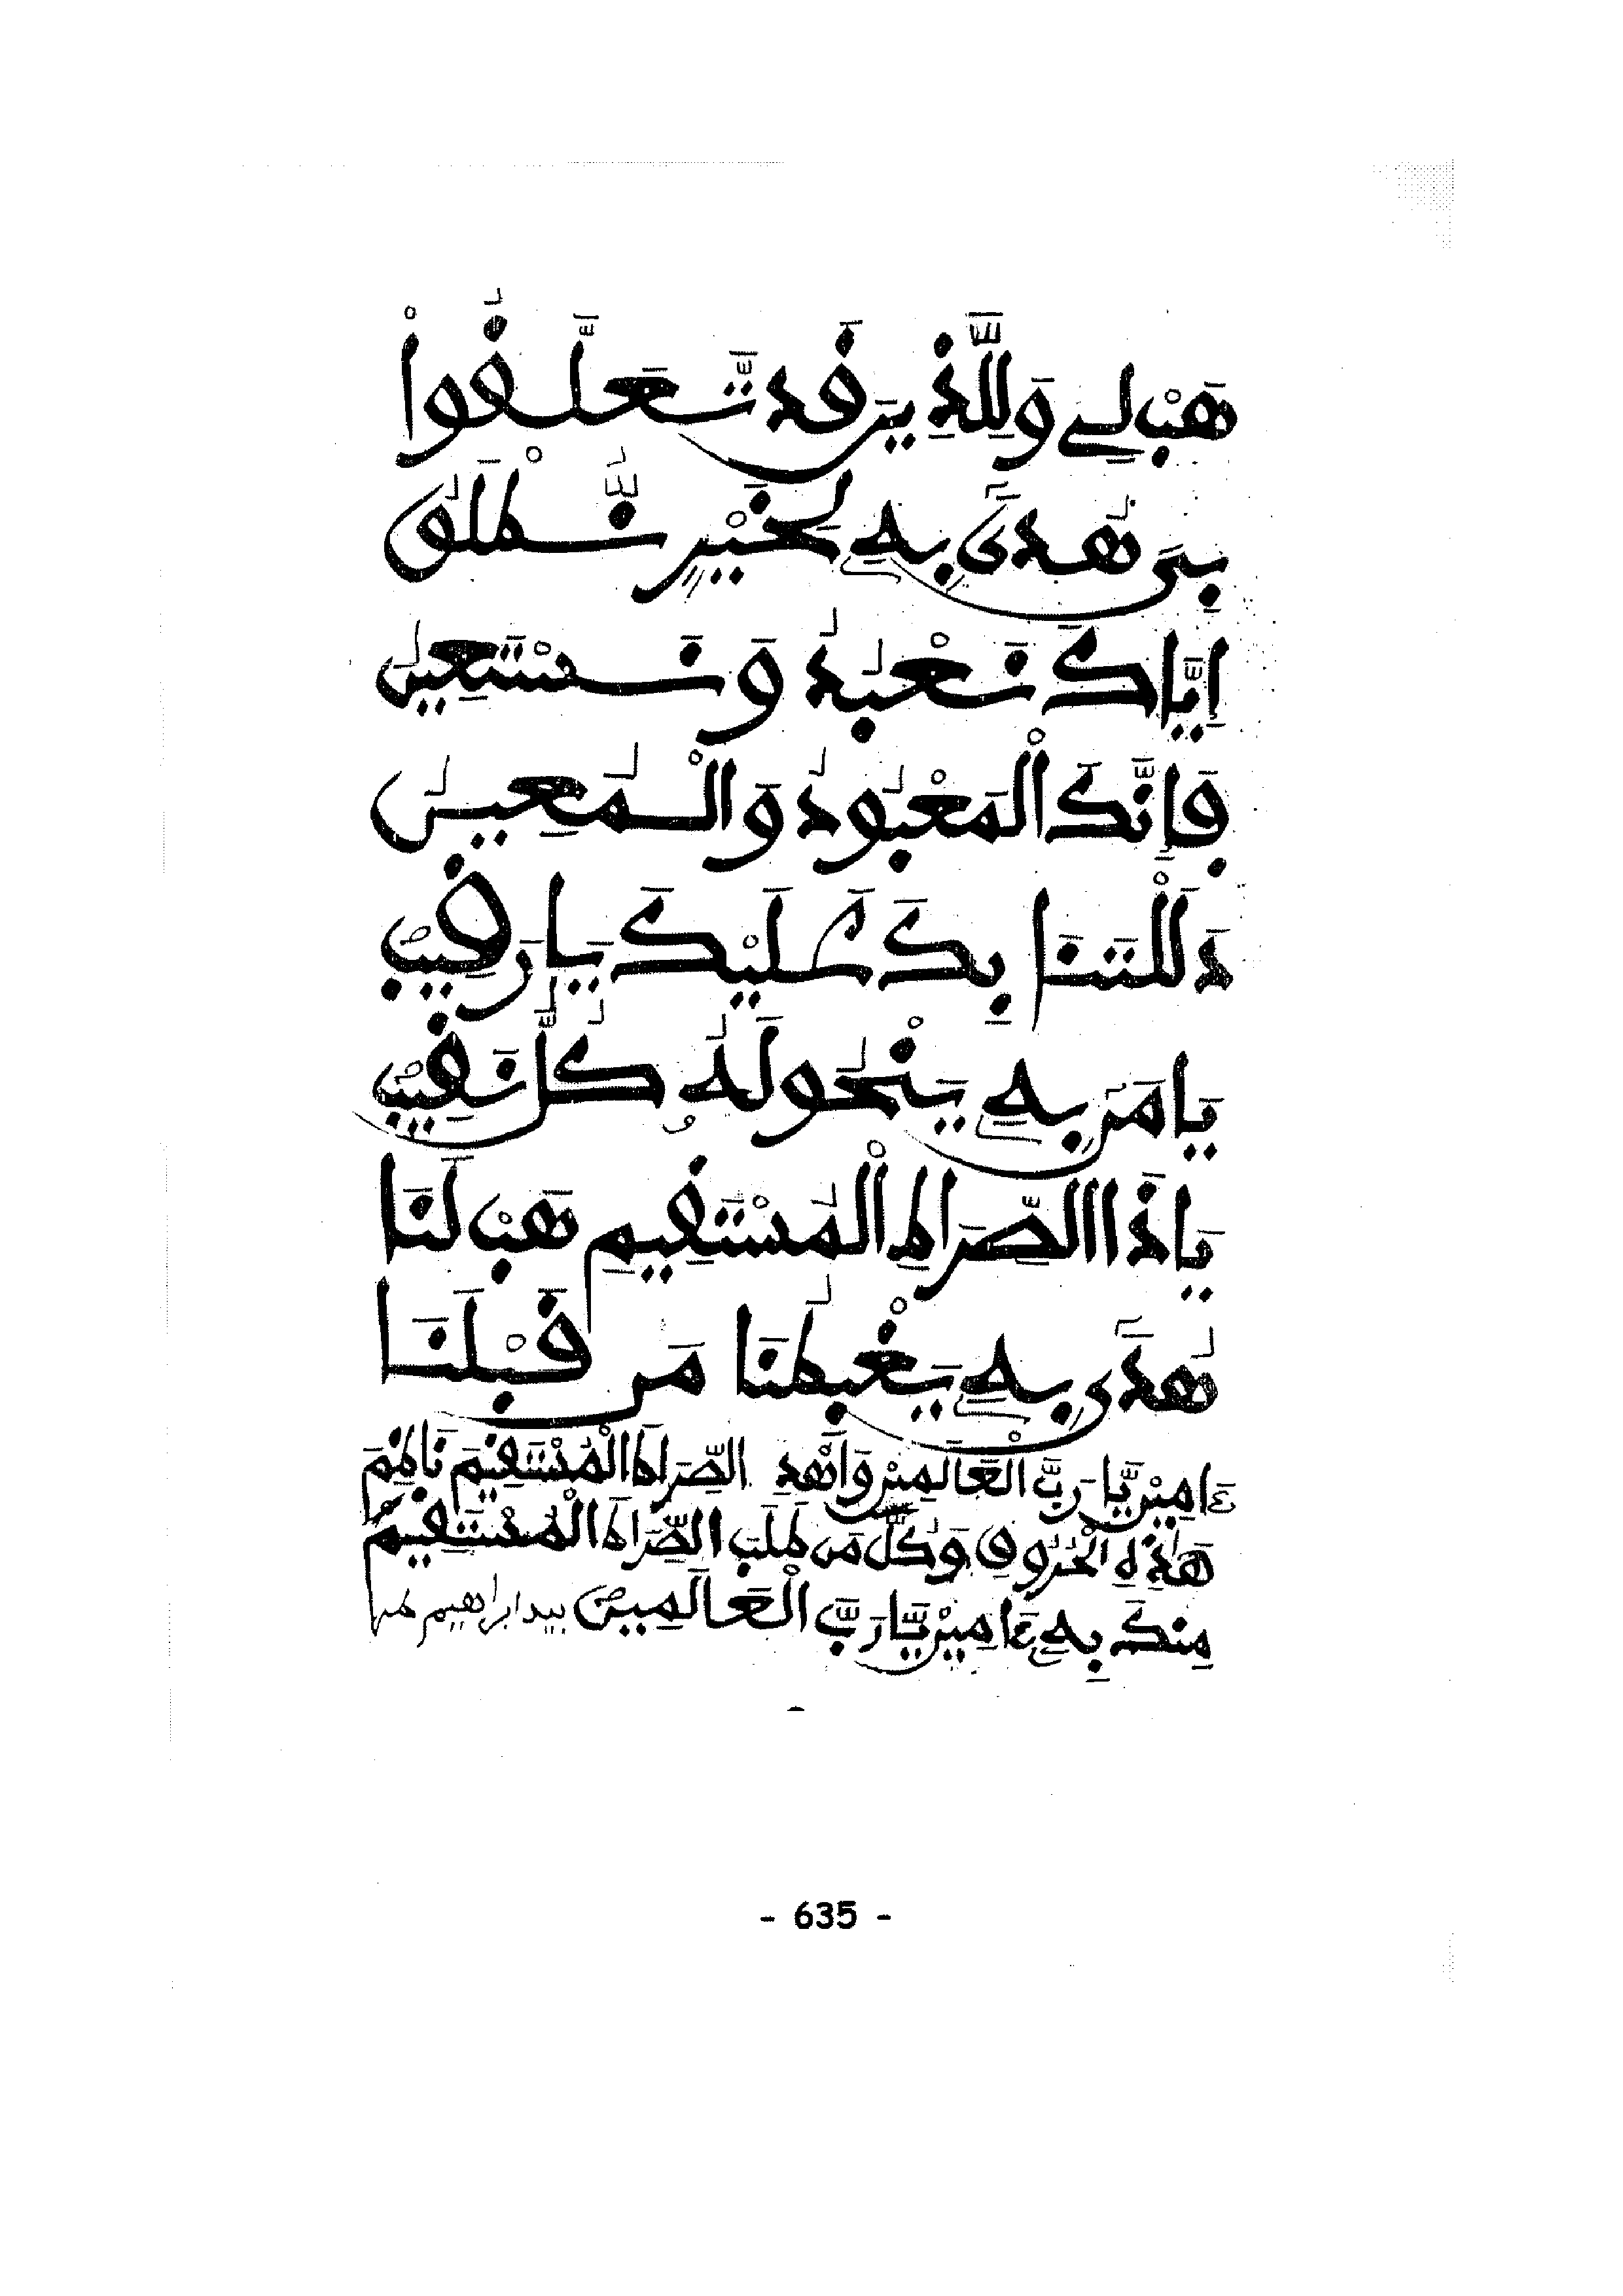 هَبْ لِے وَلِلَّذِينَ فَدْ تَّعَلَّفُواْ
بِىَ هُدىً بِهِ لِخَيْرٍ نُّطْلَقُ
إِيَّاكَ نَعْبُدُ وَنَسْتَعِينُ
فَإِنَّكَ ٱلْمَعْبُودُ وَالْمُعِينُ
دَلَلْتَنَا بِكَ عَلَيْكَ يَا رَفِيبُ
يَا مَنْ بِهِ يَنْحُو لَهُ كُلُّ نَفِيبْ
يَا ذَا الصِّرَاطِ الْمُسْتَفِيمِ هَبْ لَنَا
هُدىً بِهِ يَغْبِطُنَا مَن فَبْلَنَا
ءَامِينْ يَّا رَبَّ الْعَالَمِينْ وَٱهْدِ الصِّرَاطَ الْمُسْتَفِيمَ نَاظِمَ
هَذِهِ الْحُرُوفِ وَكُلَّ مَن طَلَبَ الصِّرَاطَ الْمُسْتَفِيمَ
مِنكَ بِهِ ءَامِينْ يَّا رَبَّ الْعَالَمِينْ بيد ابراهيم
- 635 -